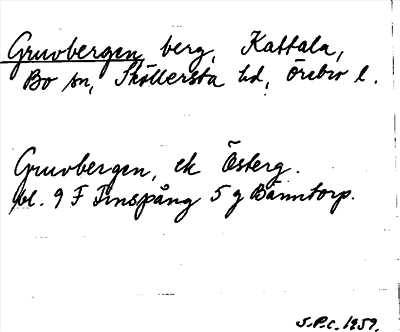 Gruvbergen berg, Kattala,
Bo sn, Sköllersta hd, Örebro l.
Gruvbergen, ek Österg.
bl. 9 F Finspång 5 g Bänntorp.
S.P.c. 1959.